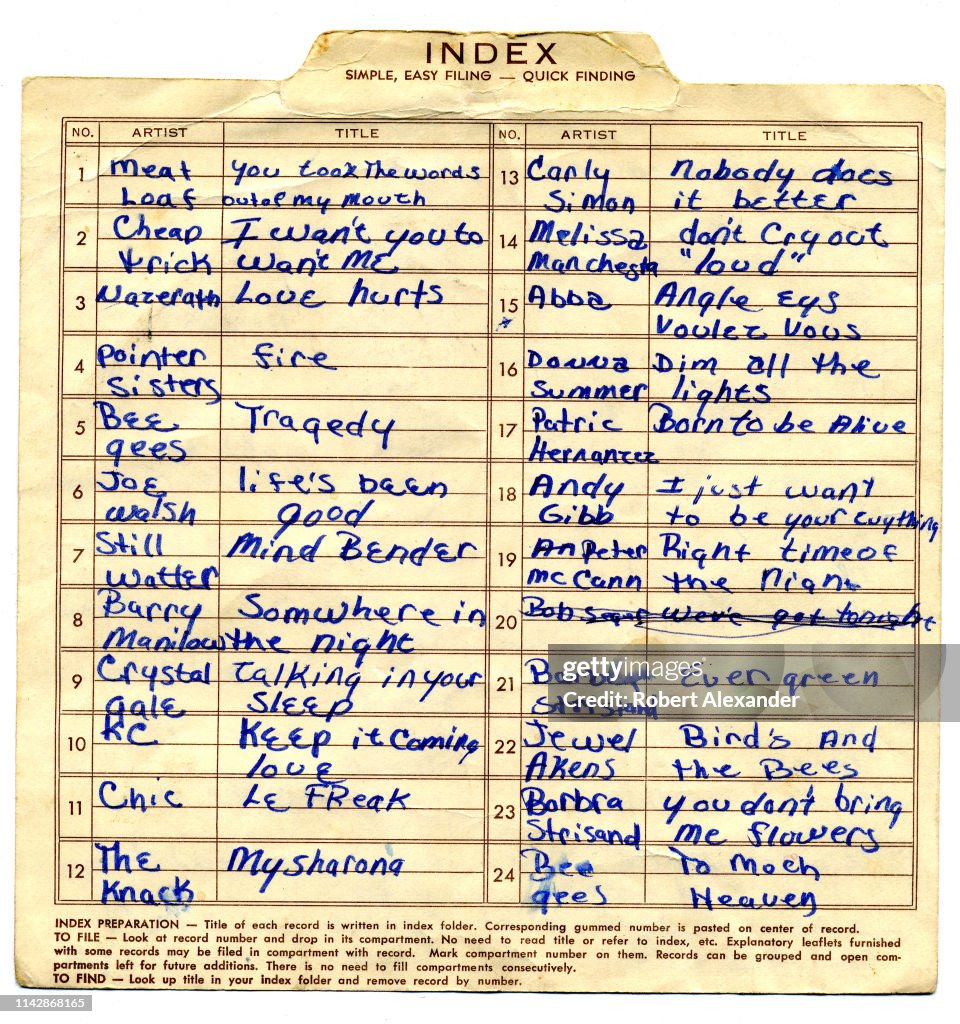 INDEX
SIMPLE, EASY FILING — QUICK FINDING
NO. ARTIST TITLE
1 Meat you took The words
Loaf out of my Mouth
2 Cheap I wan't you to
trick wan't ME
3 Nazerath Love hurts
4 Pointer fire
Sisters
5 BEE Tragedy
gees
6 JOE life's been
walsh good
7 Still Mind BENDER
WattER
8 Barry Somwhere in
Manilow the night
9 Crystal Talking in your
gale SLEEP
10 KC KEEP it coming
love
11 Chic LE FREAK
12 The My sharona
Knack
NO. ARTIST TITLE
13 Carly Nobody does
Simon it better
14 Melissa don't Cry out
Manchesta "loud"
15 Abba Angle Eys
Voulez Vous
16 Donna Dim all the
Summer lights
17 Patric Born to be Alive
Hernanzez
18 Andy I just want
Gibb to be your
19 AnPeter Right time of
McCann the Night
20 Bob We've got tonight
21 ever green
22 Jewel Bird's And
AKENS the BEES
23 Borbra you don't bring
Strisand me flowers
24 Bee To Moch
gees Heaven
gettyimages
Robert Alexander
INDEX PREPARATION — Title of each record is written in index folder. Corresponding gummed number is pasted on center of record.
TO FILE — Look at record number and drop in its compartment. No need to read title or refer to index, etc. Explanatory leaflets furnished
with some records may be filed in compartment with record. Mark compartment number on them. Records can be grouped and open com-
partments left for future additions. There is no need to fill compartments consecutively.
TO FIND — Look up title in your index folder and remove record by number.
1142868165